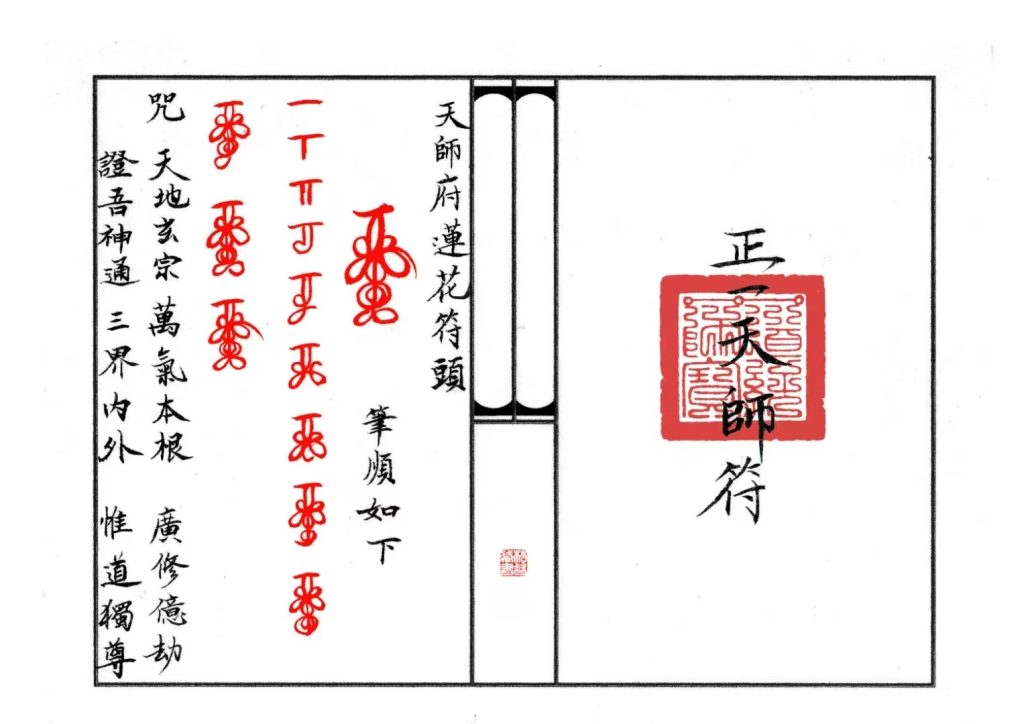 正一天師符
道經師寶
天師府蓮花符頭
筆順如下
咒 天地玄宗 萬氣本根 廣修億劫
證吾神通 三界內外 惟道獨尊